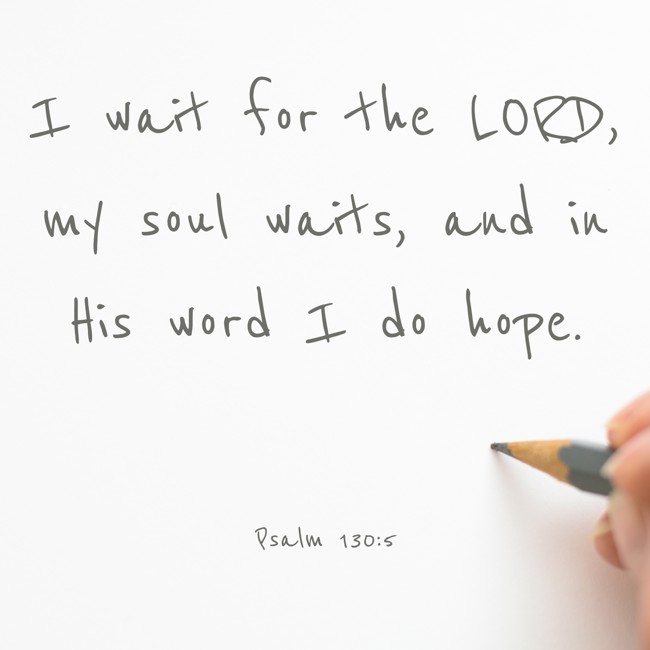 I wait for the LORD,
my soul waits, and in
His word I do hope.
Psalm 130:5